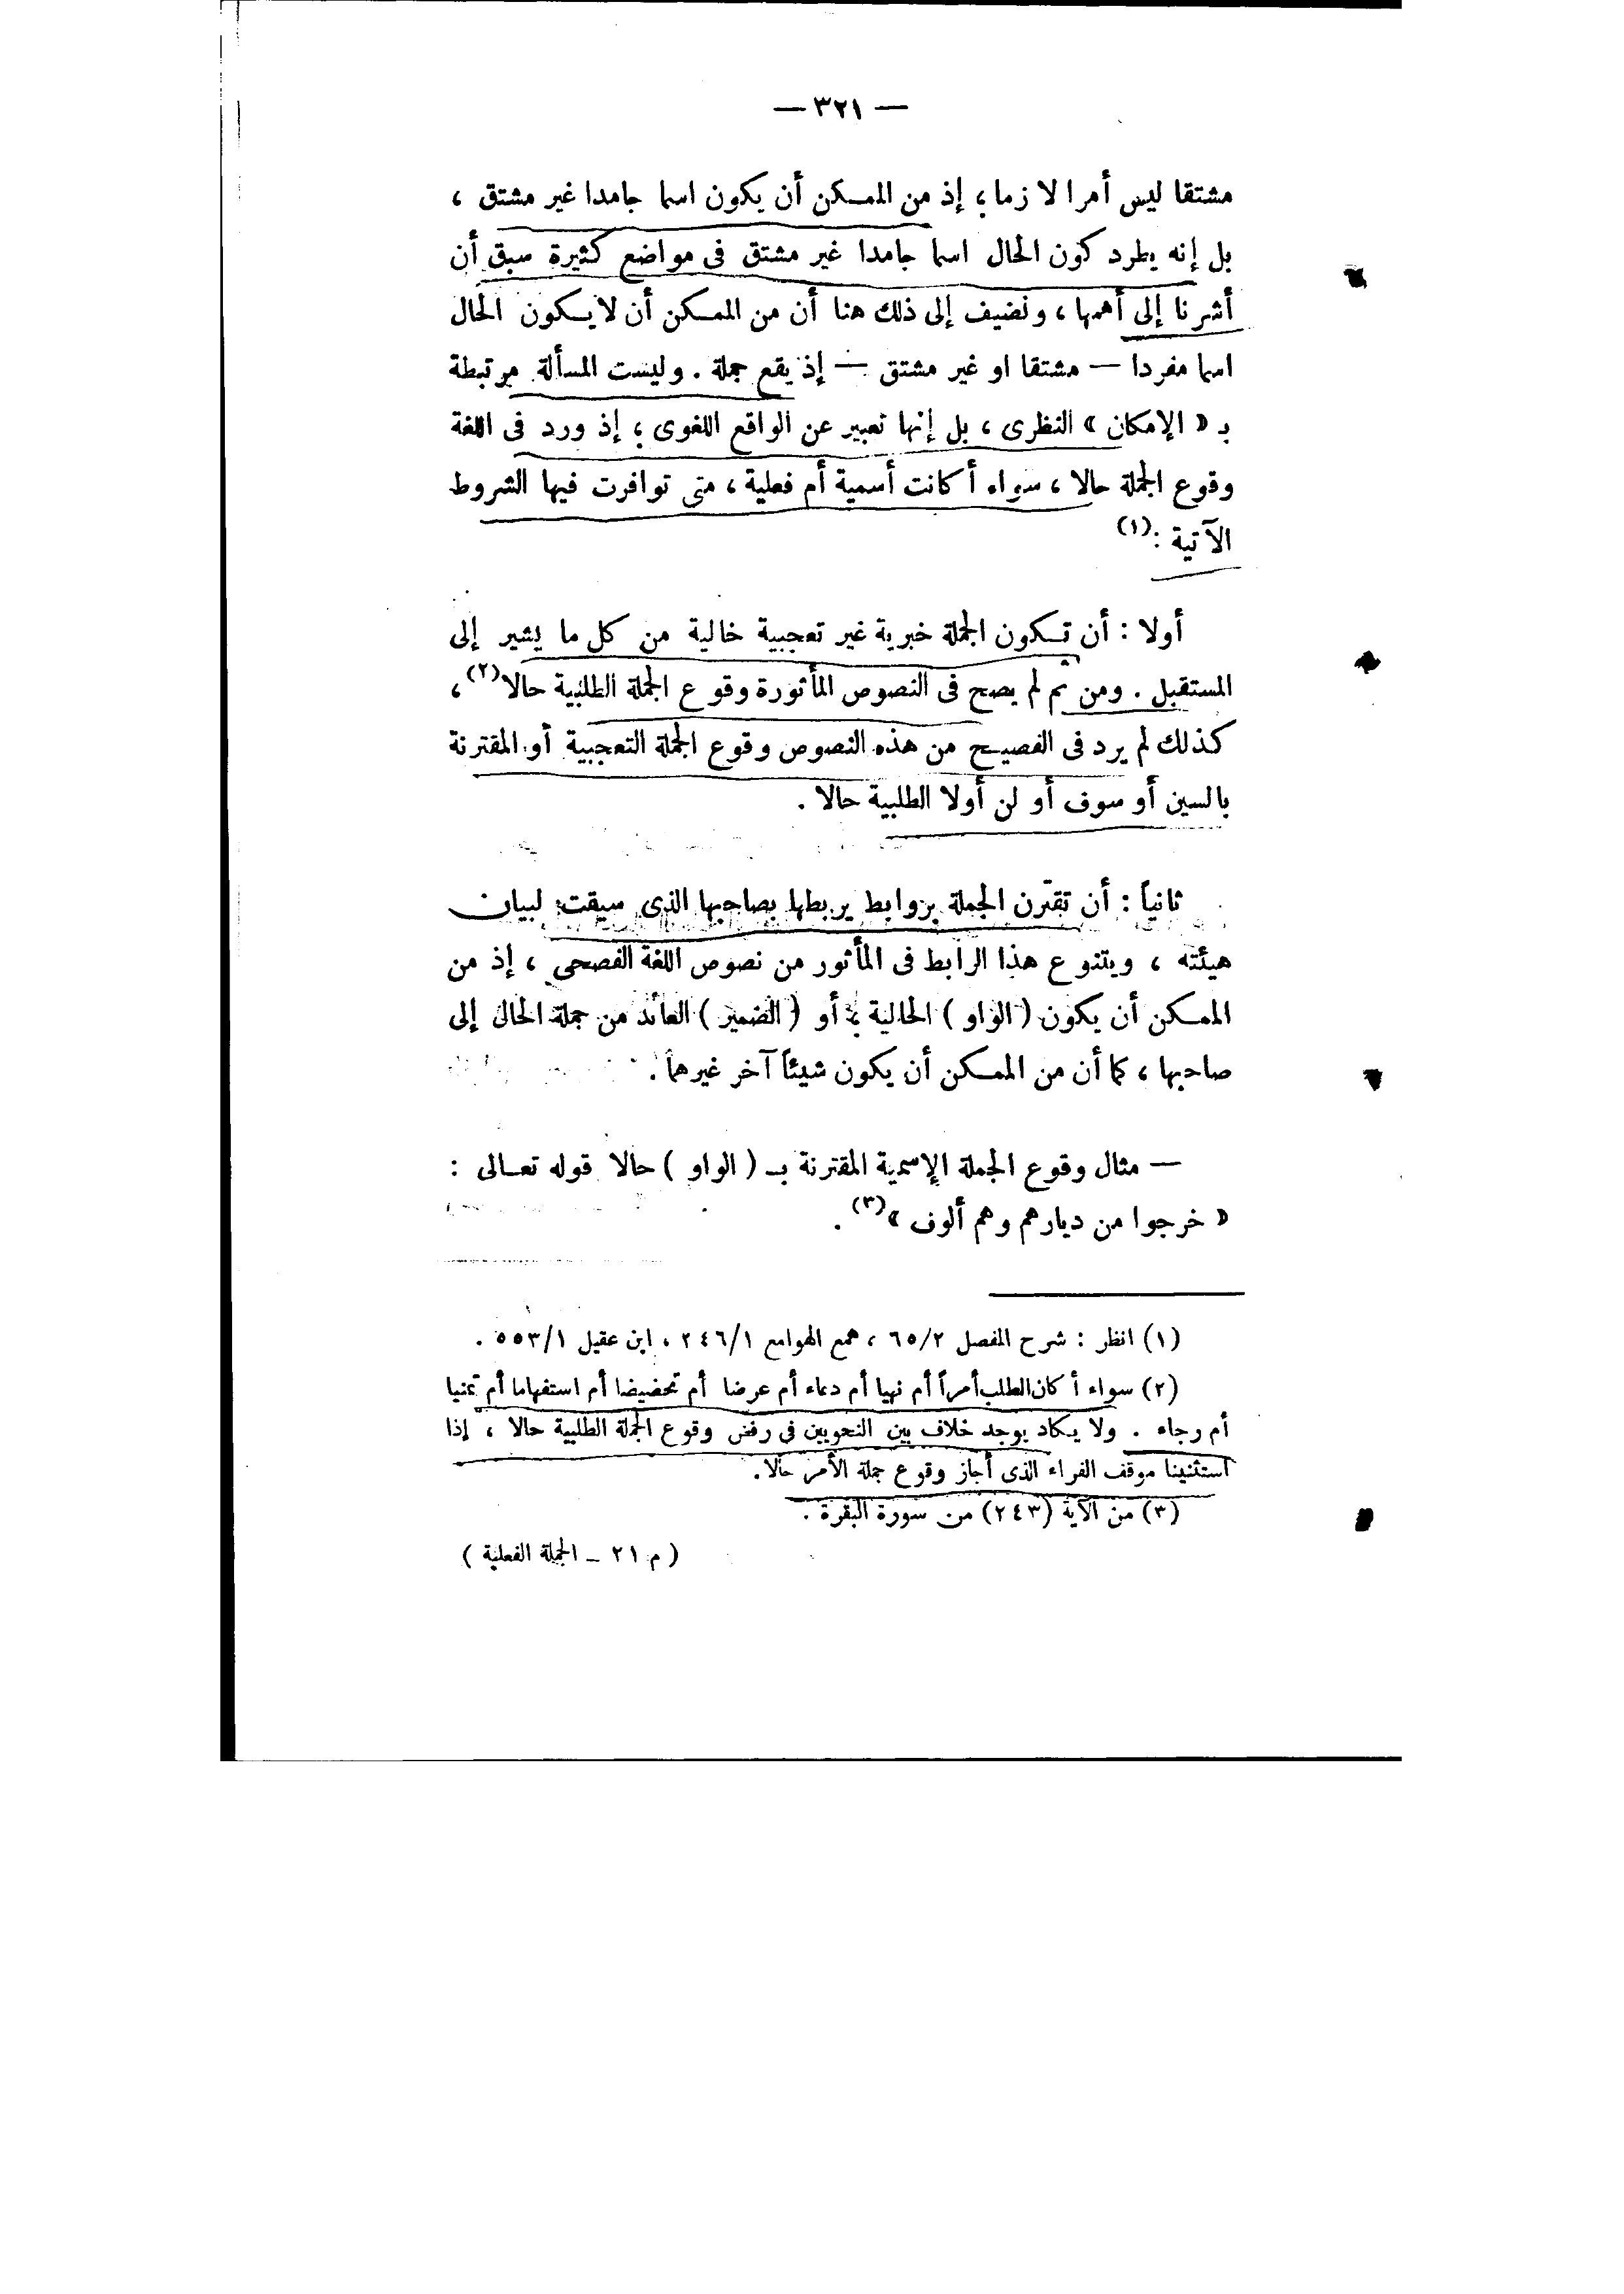 — ٣٢١ —
مشتقا ليس أمرا لازما ؛ إذ من الممكن أن يكون اسما جامدا غير مشتق ،
بل إنه يطرد كون الحال اسما جامدا غير مشتق فى مواضع كثيرة سبق أن
أشرنا إلى أهمها ، ونضيف إلى ذلك هنا أن من الممكن أن لا يكون الحال
اسما مفردا — مشتقا او غير مشتق — إذ يقع جملة . وليست المسألة مرتبطة
بـ « الإمكان » النظرى ، بل إنها تعبير عن الواقع اللغوى ؛ إذ ورد فى اللغة
وقوع الجملة حالا ، سواء أكانت أسمية أم فعلية ، متى توافرت فيها الشروط
الآتية :(١)
أولا : أن تكون الجملة خبرية غير تعجبية خالية من كل ما يشير إلى
المستقبل . ومن ثم لم يصح فى النصوص المأثورة وقوع الجملة الطلبية حالا(٢) ،
كذلك لم يرد فى الفصيح من هذه النصوص وقوع الجملة التعجبية أو المقترنة
بالسين أو سوف أو لن أولا الطلبية حالا .
ثانياً : أن تقترن الجملة بروابط يربطها بصاحبها الذى سيقت لبيان
هيئته ، ويتنوع هذا الرابط فى المأثور من نصوص اللغة الفصحى ، إذ من
الممكن أن يكون ( الواو ) الحالية ، أو ( الضمير ) العائد من جملة الحال إلى
صاحبها ، كما أن من الممكن أن يكون شيئاً آخر غيرهما .
— مثال وقوع الجملة الإسمية المقترنة بـ ( الواو ) حالا قوله تعالى :
« خرجوا من ديارهم وهم ألوف »(٣) .
(١) انظر : شرح المفصل ٦٥/٢ ، همع الهوامع ٢٤٦/١ ، ابن عقيل ٥٥٣/١ .
(٢) سواء أكان الطلب أمراً أم نهيا أم دعاء أم عرضا أم تحضيضا أم استفهاما أم تمنيا
أم رجاء . ولا يكاد يوجد خلاف بين النحويين فى رفض وقوع الجملة الطلبية حالا ، إذا
استثنينا موقف الفراء الذى أجاز وقوع جملة الأمر حالا .
(٣) من الآية (٢٤٣) من سورة البقرة .
( م ٢١ – الجملة الفعلية )